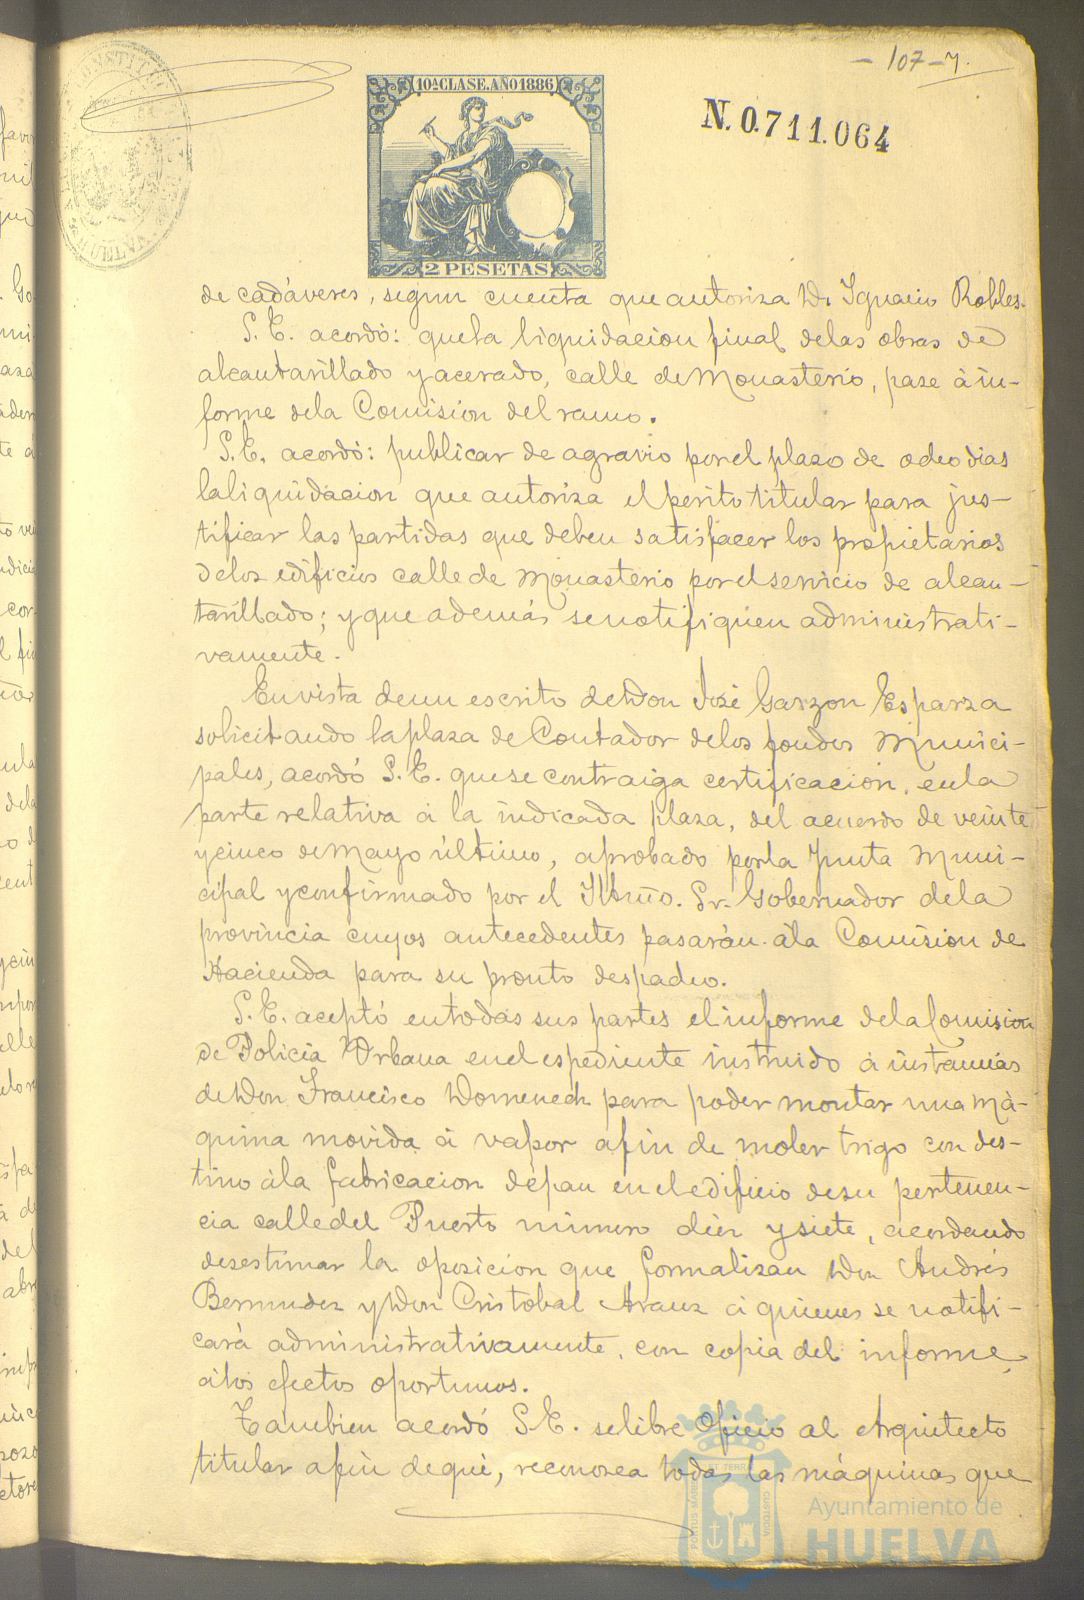 - 107 - 7.
10ª CLASE. AÑO 1886
N. 0.711.064
2 PESETAS
de cadáveres, segun cuenta que autoriza Dn Ignacio Robles.
S. E. acordó: que la liquidacion final de las obras de
alcantarillado y acerado, calle de Monasterio, pase á in-
forme de la Comision del ramo.
S. E. acordó: publicar de agravio por el plazo de ocho dias
la liquidacion que autoriza el perito titular para jus-
tificar las partidas que deben satisfacer los propietarios
de los edificios calle de Monasterio por el servicio de alcan-
tarillado; y que además se notifiquen administrati-
vamente.
En vista de un escrito de Don José Garzon Esparza
solicitando la plaza de Contador de los fondos Munici-
pales, acordó S. E. que se contraiga certificacion, en la
parte relativa á la indicada plaza, del acuerdo de veinte
y cinco de Mayo último, aprobado por la Junta Muni-
cipal y confirmado por el Iltmo. Sr. Gobernador de la
provincia cuyos antecedentes pasarán á la Comision de
Hacienda para su pronto despacho.
S. E. aceptó en todas sus partes el informe de la Comision
de Policia Urbana en el espediente instruido á instancias
de Don Francisco Domenech para poder montar una má-
quina movida á vapor afin de moler trigo con des-
tino á la fabricacion de pan en el edificio de su pertenen-
cia calle del Puerto número diez y siete, acordando
desestimar la oposicion que formalizan Don Andrés
Bermudez y Don Cristobal Arauz á quienes se notifi-
cará administrativamente, con copia del informe,
á los efectos oportunos.
Tambien acordó S. E. se libre oficio al Arquitecto
titular afin de que, reconozca todas las máquinas que
Ayuntamiento de
HUELVA